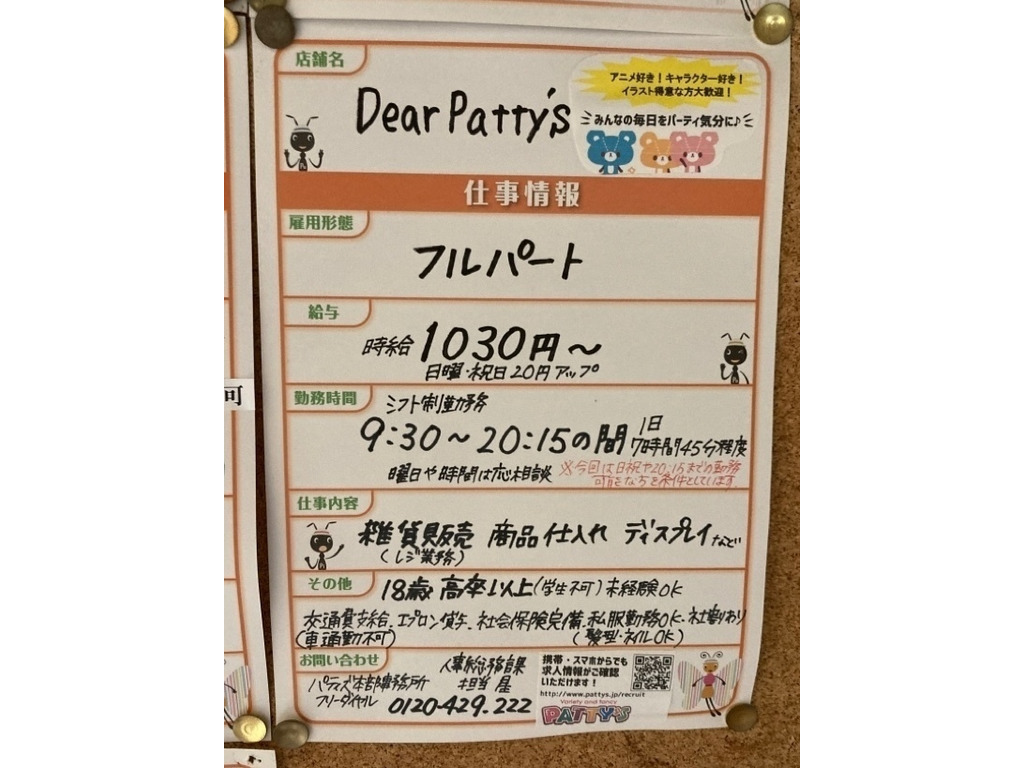 店舗名
Dear Patty's
アニメ好き！キャラクター好き！
イラスト得意な方大歓迎！
みんなの毎日をパーティ気分に♪
仕事情報
雇用形態
フルパート
給与
時給 1030円～
日曜・祝日20円アップ
勤務時間
シフト制勤務
9:30～20:15の間 1日7時間45分程度
曜日や時間は応相談
※今回は日祝や20:15までの勤務
可能な方を条件としています。
仕事内容
雑貨販売 商品仕入れ ディスプレイなど
(レジ業務)
その他
18歳高卒以上(学生不可)未経験OK
交通費支給、エプロン貸与、社会保険完備、私服勤務OK、社割あり
(車通勤不可) (髪型・ネイルOK)
お問い合わせ
人事総務課
パティズ本部事務所 担当 星
フリーダイヤル 0120-429.222
携帯・スマホからでも
求人情報がご確認
いただけます！
http://www.pattys.jp/recruit
Variety and fancy
PATTY'S
可